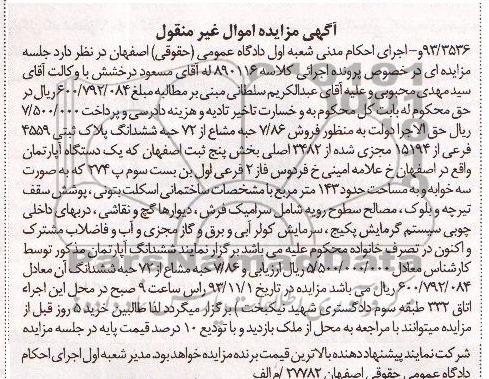 آگهی مزایده اموال غیر منقول
۹۳/۳۵۳۶و- اجرای احکام مدنی شعبه اول دادگاه عمومی (حقوقی) اصفهان در نظر دارد جلسه
مزایده ای در خصوص پرونده اجرائی کلاسه ۸۹۰۱۱۶ له آقای مسعود درخشش با وکالت آقای
سید مهدی محبوبی و علیه آقای عبدالکریم سلطانی مبنی بر مطالبه مبلغ ۶۰۰/۷۹۲/۰۸۴ ریال
حق محکوم له بابت کل محکوم به و خسارت تاخیر تادیه و هزینه دادرسی و پرداخت ۷/۵۰۰/۰۰۰
ریال حق الاجرا دولت به منظور فروش ۷/۸۶ حبه مشاع از ۷۲ حبه ششدانگ پلاک ثبتی ۴۵۵۹
فرعی از ۱۵۱۹۴ مجزی شده از ۳۴۸۲ اصلی بخش پنج ثبت اصفهان که یک دستگاه آپارتمان
واقع در اصفهان خ علامه امینی خ فردوس فاز ۲ فرعی اول بن بست سوم پ ۲۷۴ که به صورت
سه خوابه و به مساحت حدود ۱۴۳ متر مربع با مشخصات ساختمانی اسکلت بتونی، پوشش سقف
تیرچه و بلوک، مصالح سطوح رویه شامل سرامیک فرش، دیوارها گچ و نقاشی، دربهای داخلی
چوبی سیستم گرمایش پکیج، سرمایش کولر آبی و برق و گاز مجزی و آب و فاضلاب مشترک
و اکنون در تصرف خانواده محکوم علیه می باشد برگزار نمایند ششدانگ آپارتمان مذکور توسط
کارشناس معادل ۵/۵۰۰/۰۰۰/۰۰۰ ریال ارزیابی و ۷/۸۶ حبه مشاع از ۷۲ حبه ششدانگ آن معادل
۶۰۰/۷۹۲/۰۸۴ ریال می باشد مزایده در تاریخ ۹۳/۱۱/۱ راس ساعت ۹ صبح در محل این اجراء
اتاق ۳۳۲ طبقه سوم دادگستری شهید نیکبخت) برگزار میگردد لذا طالبین خرید ۵ روز قبل از
مزایده میتوانند با مراجعه به محل از ملک بازدید و با تودیع ۱۰ درصد قیمت پایه در جلسه مزایده
شرکت نمایند پیشنهاد دهنده بالاترین قیمت برنده مزایده خواهد بود. مدیر شعبه اول اجرای احکام
دادگاه عمومی حقوقی اصفهان ۲۷۷۸۲ /م الف
ParsNamadData